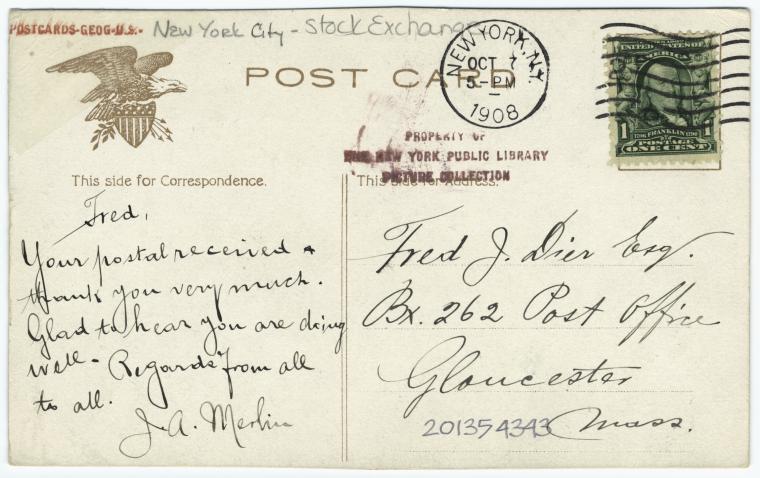 POSTCARDS-GEOG-U.S.- New York City - Stock Exchange
POST CARD
NEW YORK, N.Y.
OCT 7
5-PM
1908
UNITED STATES OF
AMERICA
1 FRANKLIN 1
POSTAGE
ONE CENT
PROPERTY OF
THE NEW YORK PUBLIC LIBRARY
PICTURE COLLECTION
This side for Correspondence.
This side for Address.
Fred,
Your postal received &
thank you very much.
Glad to hear you are doing
well - Regards from all
to all.
J. A. Merlin
Fred J. Dier Esq.
Bx. 262 Post Office
Gloucester
Mass.
201354343